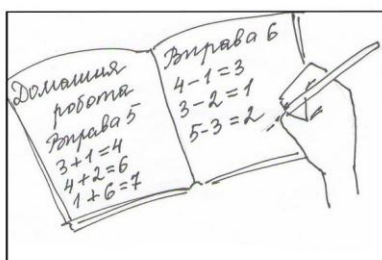 Домашня
робота
Вправа 5
3+1=4
4+2=6
1+6=7
Вправа 6
4-1=3
3-2=1
5-3=2